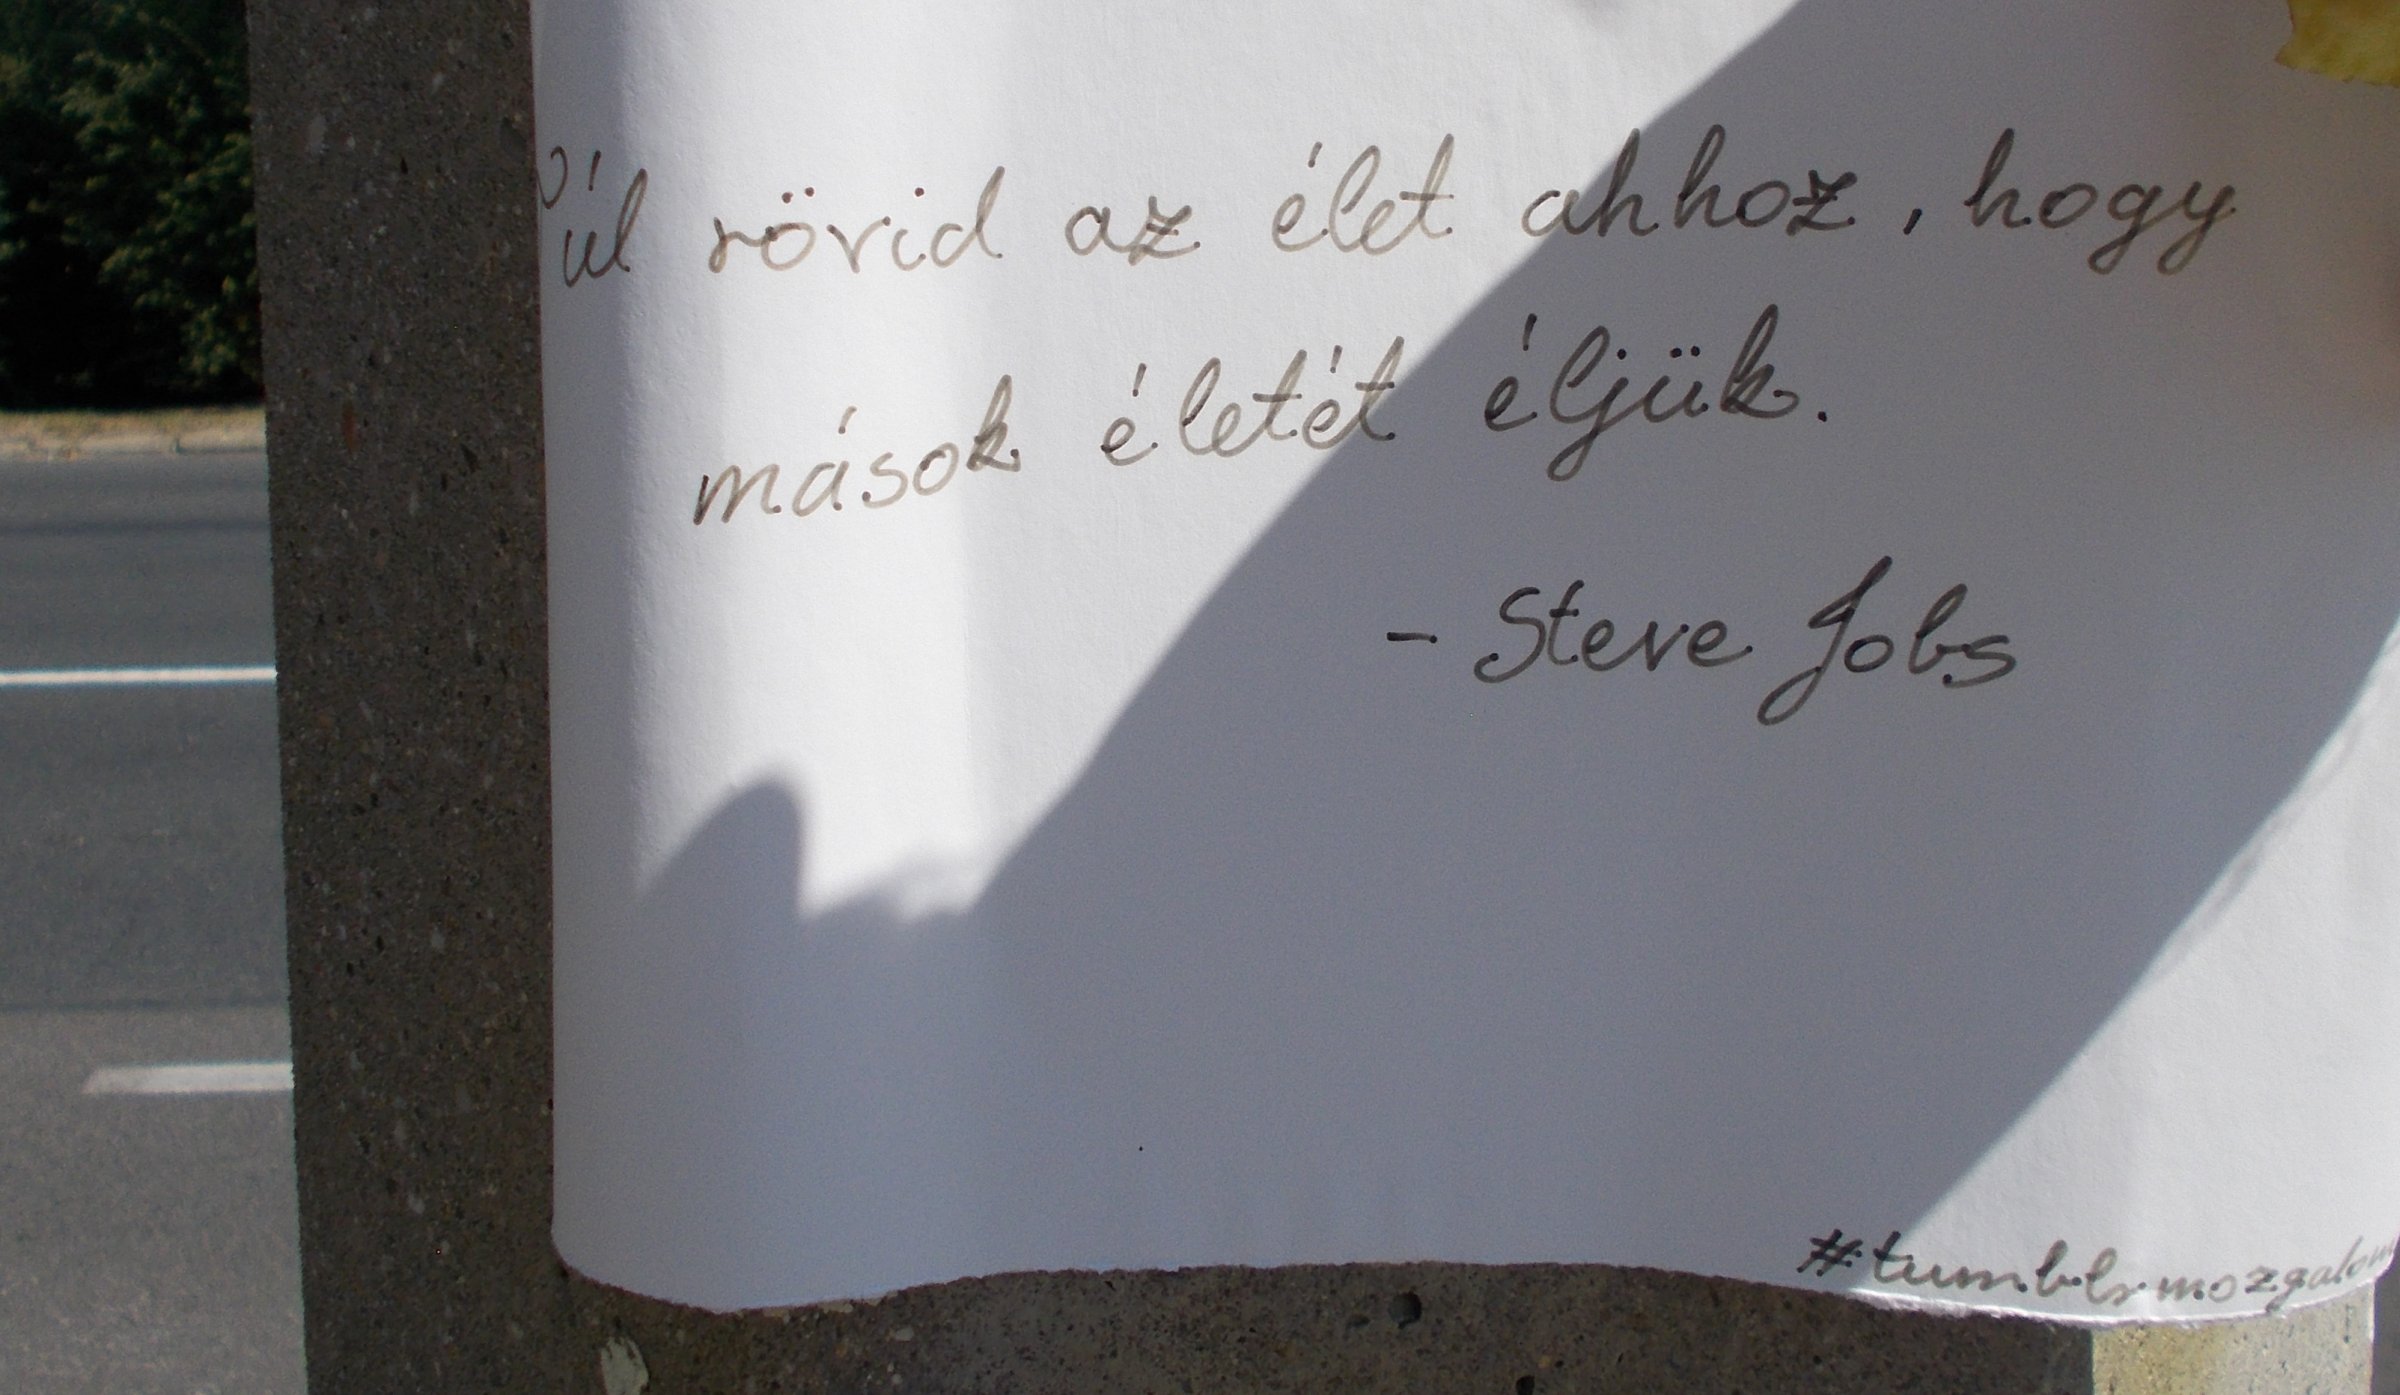 Túl rövid az élet ahhoz, hogy
mások életét éljük.
- Steve Jobs
#tumblrmozgalom